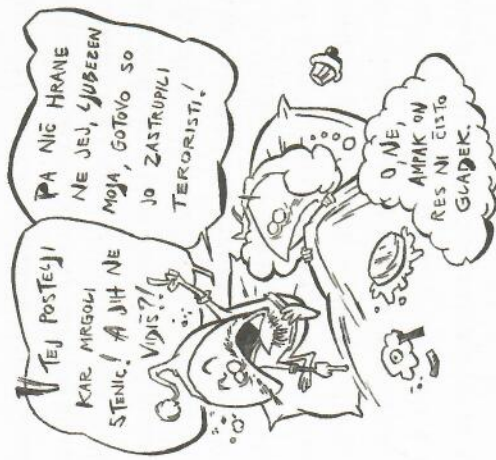 V TEJ POSTELJI
KAR MRGOLI
STENIC! A JIH NE
VIDIŠ?!
PA NIČ HRANE
NE JEJ, LJUBEZEN
MOJA, GOTOVO SO
JO ZASTRUPILI
TERORISTI!
O, NE,
AMPAK ON
RES NI ČISTO
GLADEK.